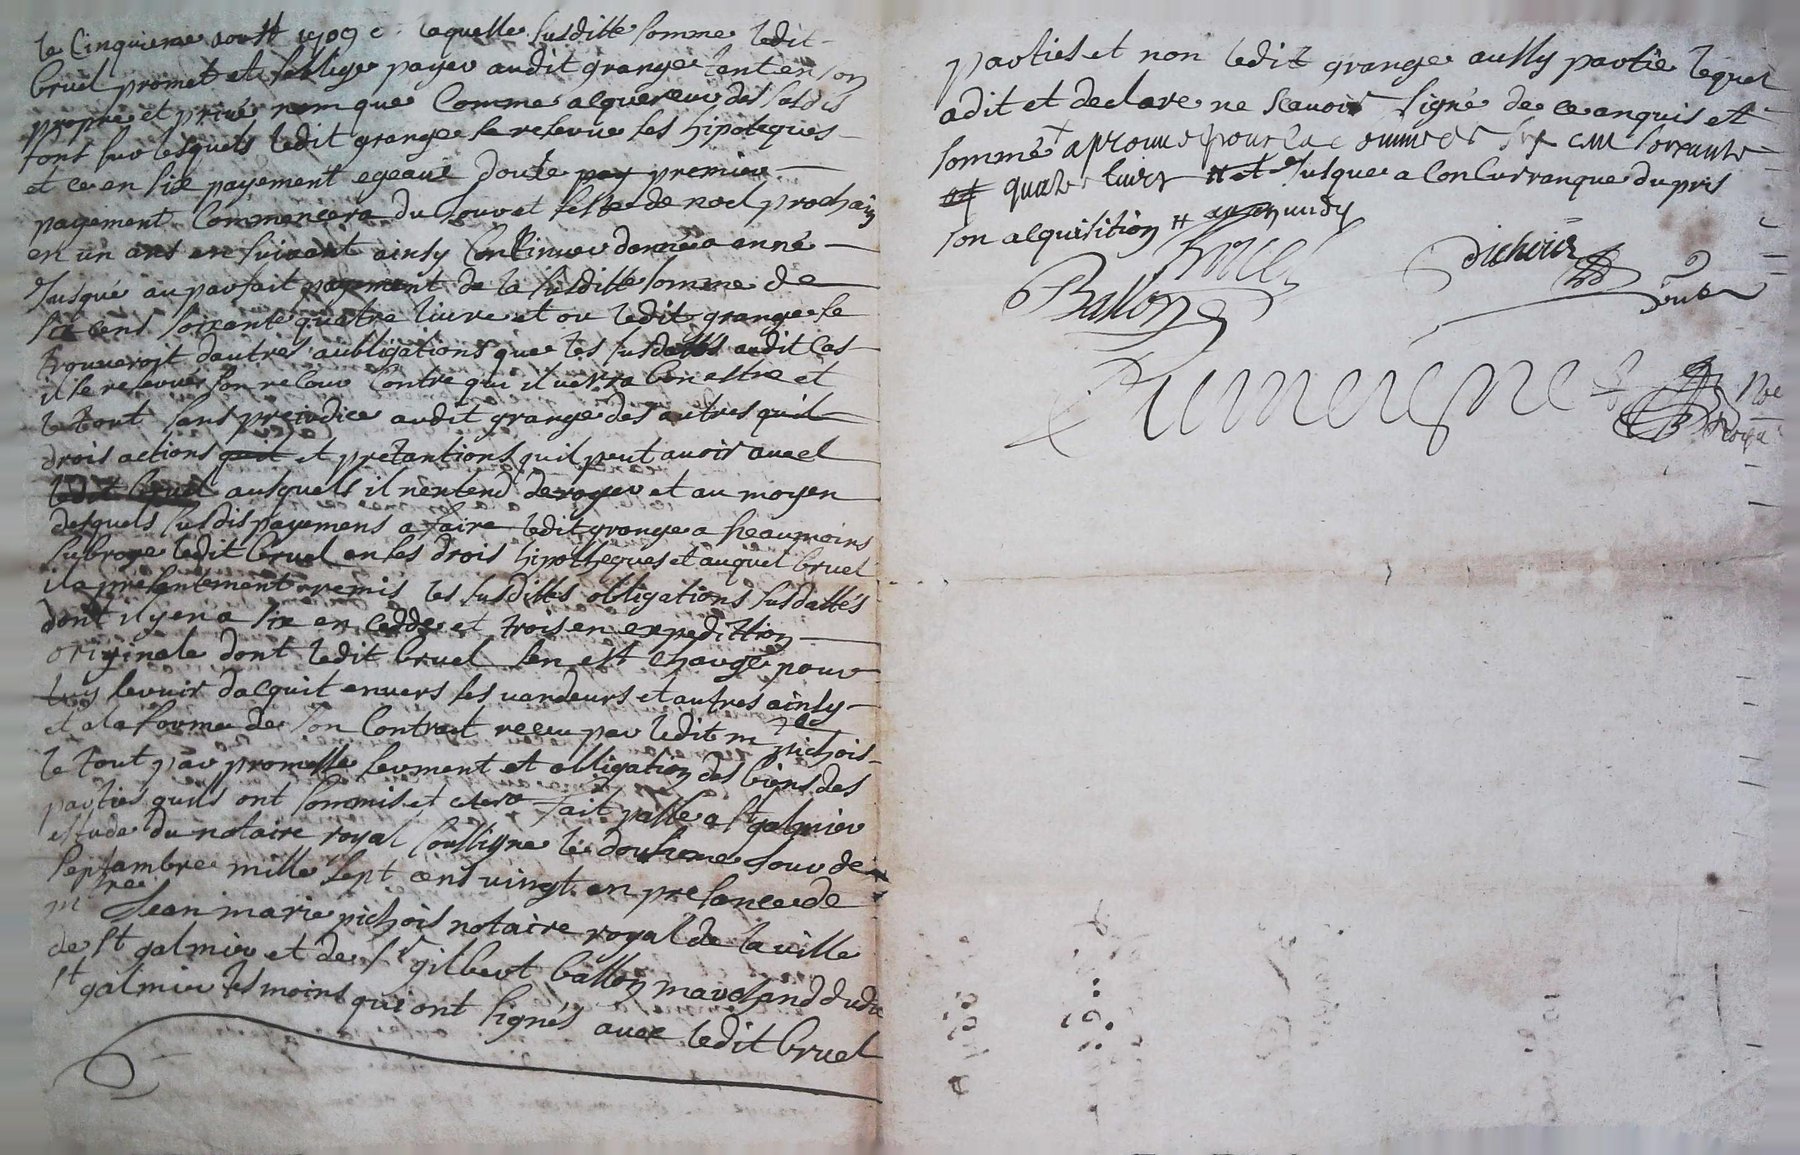 le Cinquieme aoust 1709 c. laquelle susditte somme ledit
bruel promet et soblige payer audit grange tant en son
propre et privé nom que Comme acquereur des fonds
sur lesquels ledit grange se reserve ses hipoteques
et ce en six payement egeaux dont le pay premier
payement Commencera du jour et feste de noel prochain
en un ans en suivant ainsy Continuer dannée a anné
Jusque au parfait payement de la susditte somme de
six cens soixante quatre livre et ou ledit grange se
trouverost dautres aubligations que les susdattés audit Cas
il se reserve son recour Contre qui il verra bon estre et
le tout sans preiudice audit grange des autres quil
drois actions et pretantions quil peut avoir avecl
ledit bruel ausquels il nentend deroger et au moyen
desquels susdis payemens a faire ledit grange a neaumoins
subroge ledit bruel en ses drois hipotheques et auquel bruel
il a presentement remis les susdittes obligations susdattés
dont il y en a six en cedde et trois en expedition
originale dont ledit bruel sen est chargé pour
luy servir dacquit envers ses vandeurs et autres ainsy
et a la forme de son Contract receu par ledit mtre pichois
le tout par promesse serment et obligation des biens des
parties quils ont sommis et cetera fait passé a st galmier
estude du notaire royal soussigne le dousieme Jour de
Septambre mille sept cens vingt en presance de
mtre Jean marie pichois notaire royal de la ville
de st galmier et de sr gilbert ballon marchand dudit
st galmier tesmoins qui ont signés avec ledit bruel
parties et non ledit grange aussy partie lequel
a dit et declare ne scavoir signé de ce anquis et
sommé + aprouvé pour la somme de six cent soixante
quatre livres # et Jusque a Concurranque du pris
son acquisition #
bruel
dichois
Ballon
Pumeigne
Noe
Royal